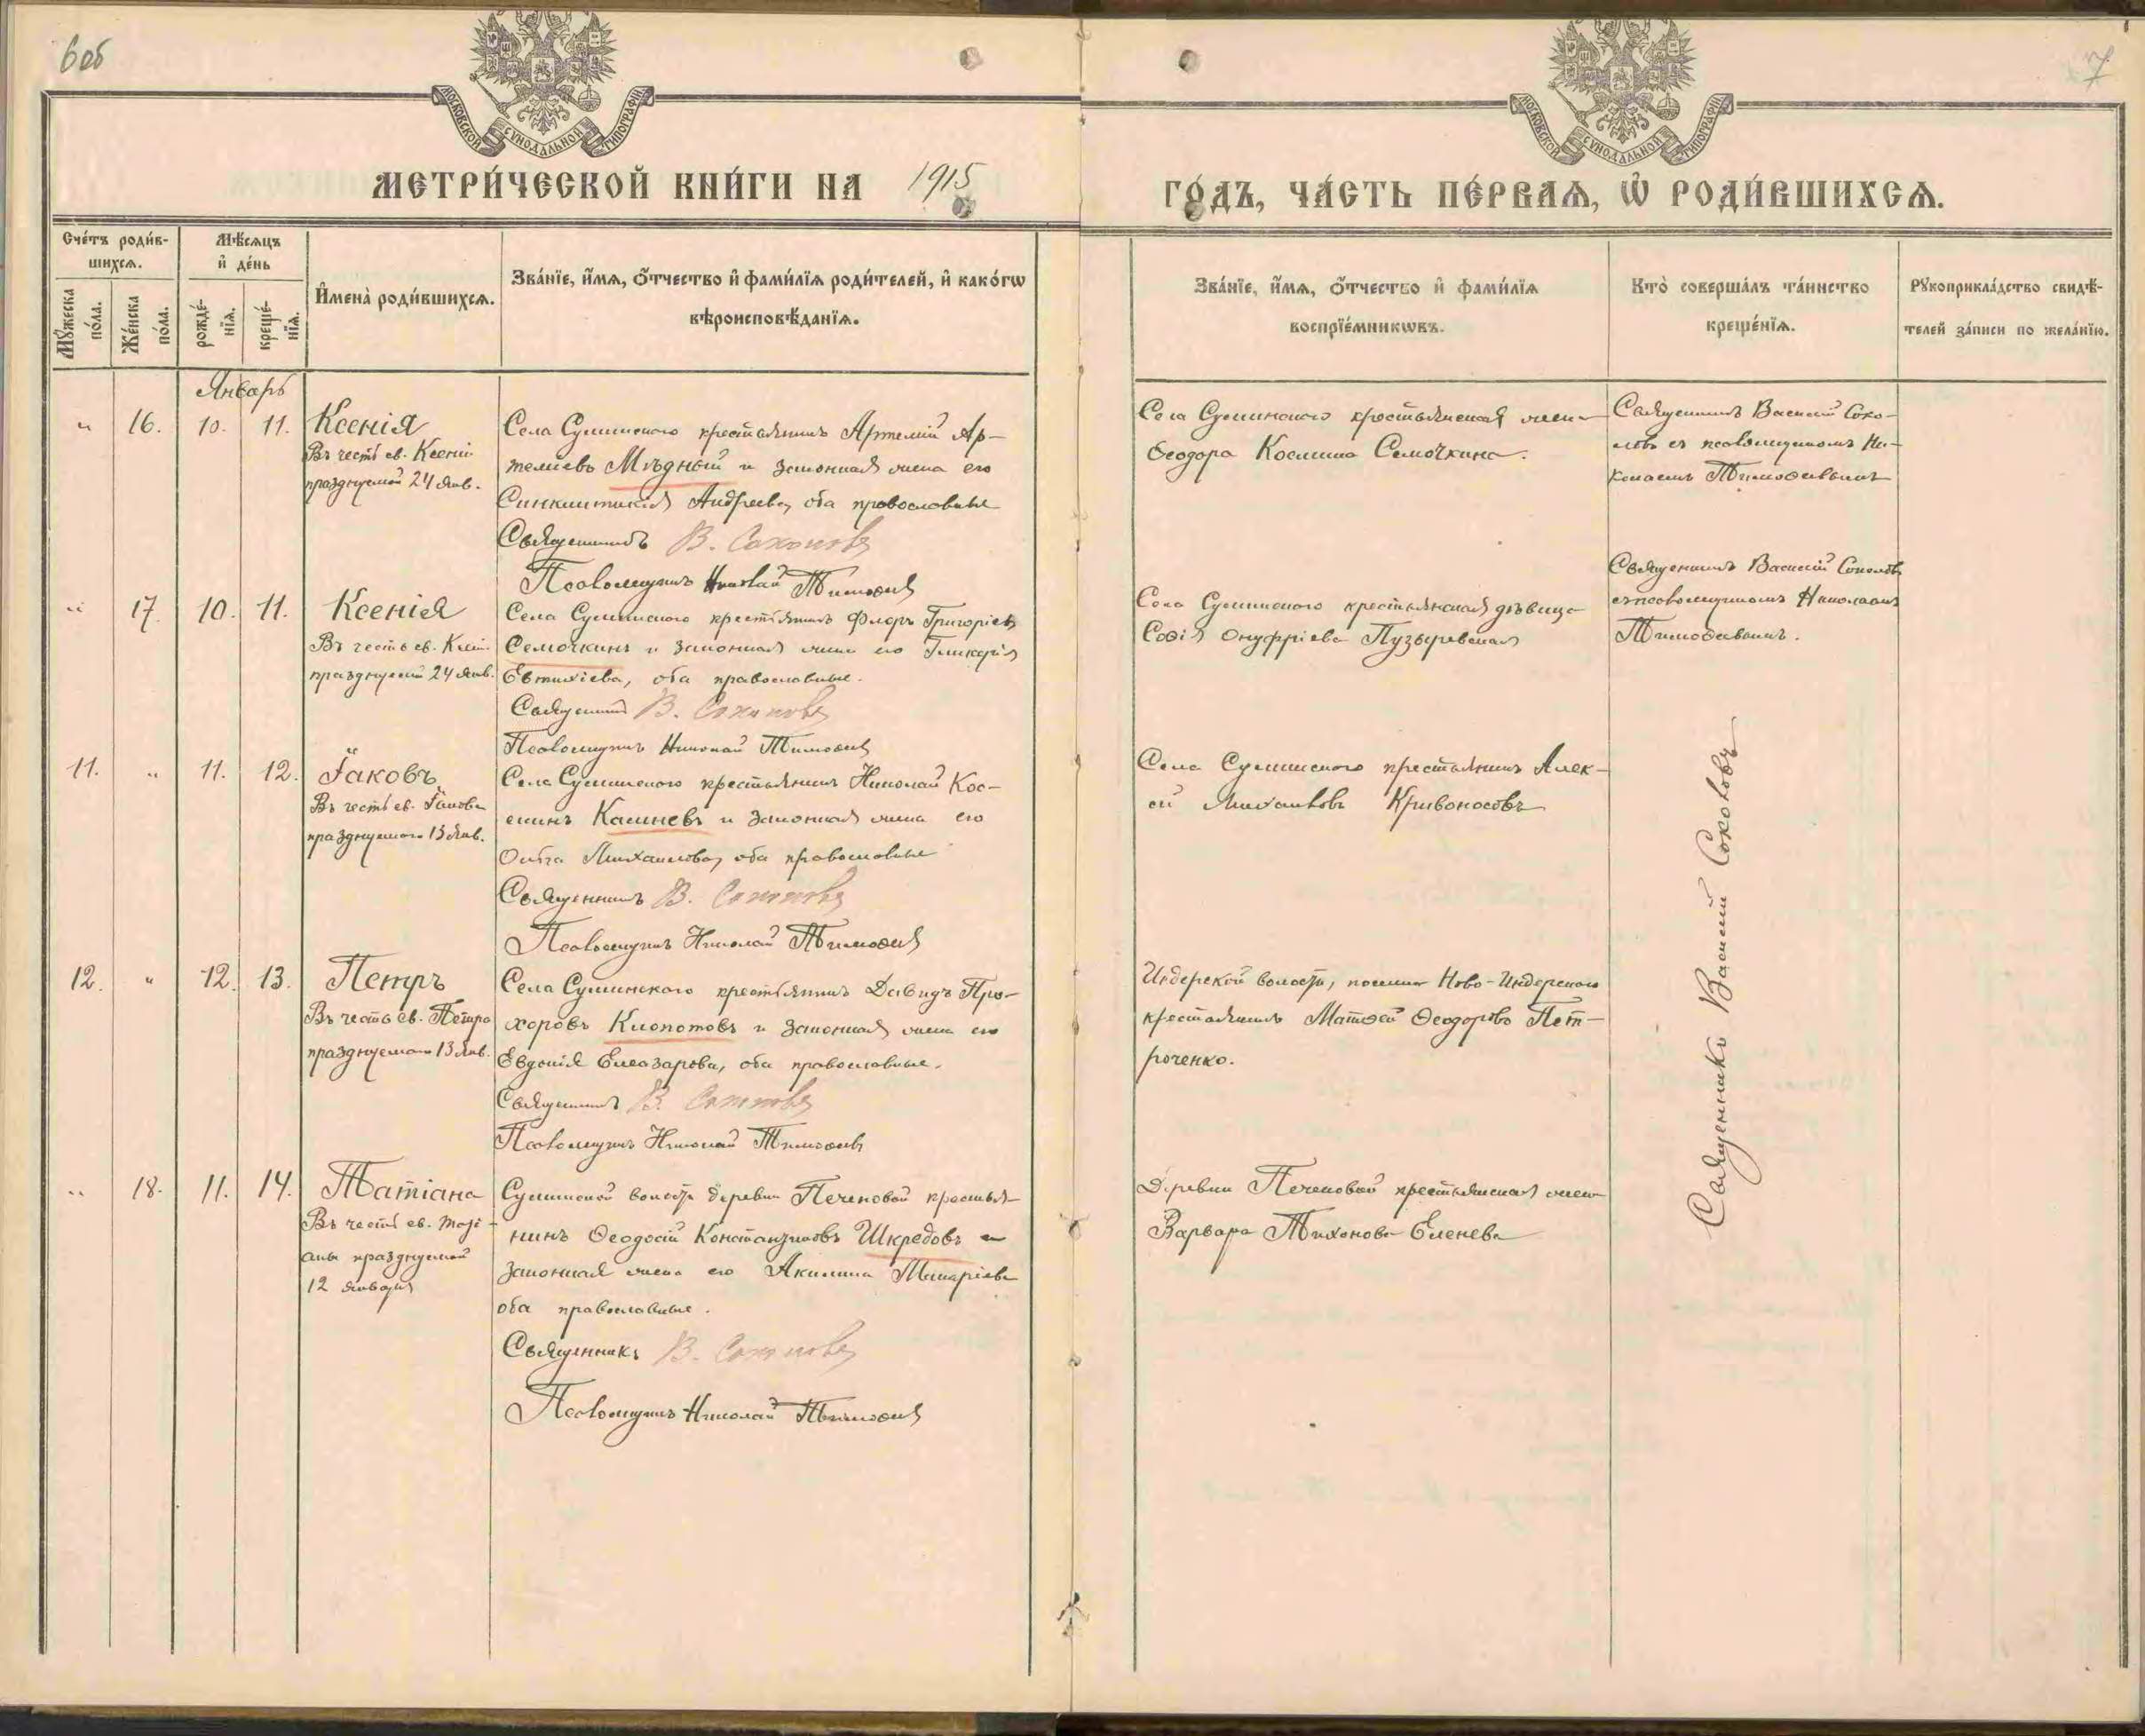 6 об
7
МОСКОВСКОЙ СѴНОДАЛЬНОЙ ТИПОГРАФІИ
МОСКОВСКОЙ СѴНОДАЛЬНОЙ ТИПОГРАФІИ
МЕТРИ́ЧЕСКОЙ КНИ́ГИ НА 1915
ГО́ДЪ, ЧА́СТЬ ПЕ́РВАѦ, Ѡ҆ РОДИ́ВШИХСѦ.
Сче́тъ роди́в-
шихсѧ.
Мꙋжеска
по́ла.
Же́нска
по́ла.
Мѣ́сѧцъ
и҆ де́нь
рожде́-
нїѧ.
креще́-
нїѧ.
И҆мена̀ роди́вшихсѧ.
Зва́нїе, и҆́мѧ, ѻ҆́тчество и҆ фами́лїѧ роди́телей, и҆ како́гѡ
вѣроисповѣ́данїѧ.
Зва́нїе, и҆́мѧ, ѻ҆́тчество и҆ фами́лїѧ
воспрїе́мникѡвъ.
Кто̀ соверша́лъ та́инство
креще́нїѧ.
Рꙋкоприкла́дство свидѣ́-
телей за́писи по жела́нїю.
Январь
„ 16. 10. 11. Ксенія
Въ честь св. Ксеніи
празднуемой 24 янв.
Села Суминского крестьянинъ Артемій Ар-
темиевъ Мѣдный и законная жена его
Андреева, оба православные
Священникъ В. Соколовъ
Псаломщикъ Николай Тимофеев
Села Суминского крестьянская жена
Ѳеодора Космина Семочкина.
Священникъ Василій Соко-
ловъ съ псаломщикомъ Ни-
колаемъ Тимофеевымъ
„ 17. 10. 11. Ксенія
Въ честь св. Ксеніи
празднуемой 24 янв.
Села Суминского крестьянинъ Флоръ Григоріевъ
Семочкинъ и законная жена его Гликерія
Евтихіева, оба православные.
Священникъ В. Соколовъ
Псаломщикъ Николай Тимофеев
Села Суминского крестьянская дѣвица
Софія Онуфріева Пузыревская
Священникъ Василій Соколовъ
съ псаломщикомъ Николаемъ
Тимофеевымъ.
11. „ 11. 12. Іаковъ
Въ честь св. Іакова
празднуемаго 13 янв.
Села Суминского крестьянинъ Николай Кос-
минъ Калиневъ и законная жена его
Ольга Михаилова, оба православные
Священникъ В. Соколовъ
Псаломщикъ Николай Тимофеев
Села Суминского крестьянинъ Алек-
сѣй Михаиловъ Кривоносовъ
12. „ 12. 13. Петръ
Въ честь св. Петра
празднуемаго 13 янв.
Села Суминскаго крестьянинъ Давидъ Про-
хоровъ Клопотовъ и законная жена его
Евдокія Елеазарова, оба православные.
Священникъ В. Соколовъ
Псаломщикъ Николай Тимофеевъ
Индерской волости, поселка Ново-Индерского
крестьянинъ Матѳей Ѳеодоровъ Пет-
роченко.
„ 18. 11. 14. Татіана
Въ честь св. Таті-
аны празднуемой
12 января
Суминской волости деревни Печеновой крестья-
нинъ Ѳеодосій Константиновъ Шкредовъ и
законная жена его Акилина Макаріева
оба православные.
Священникъ В. Соколовъ
Псаломщикъ Николай Тимофеев
Деревни Печеновой крестьянская жена
Варвара Тихонова Еленева
Священникъ Василій Соколовъ